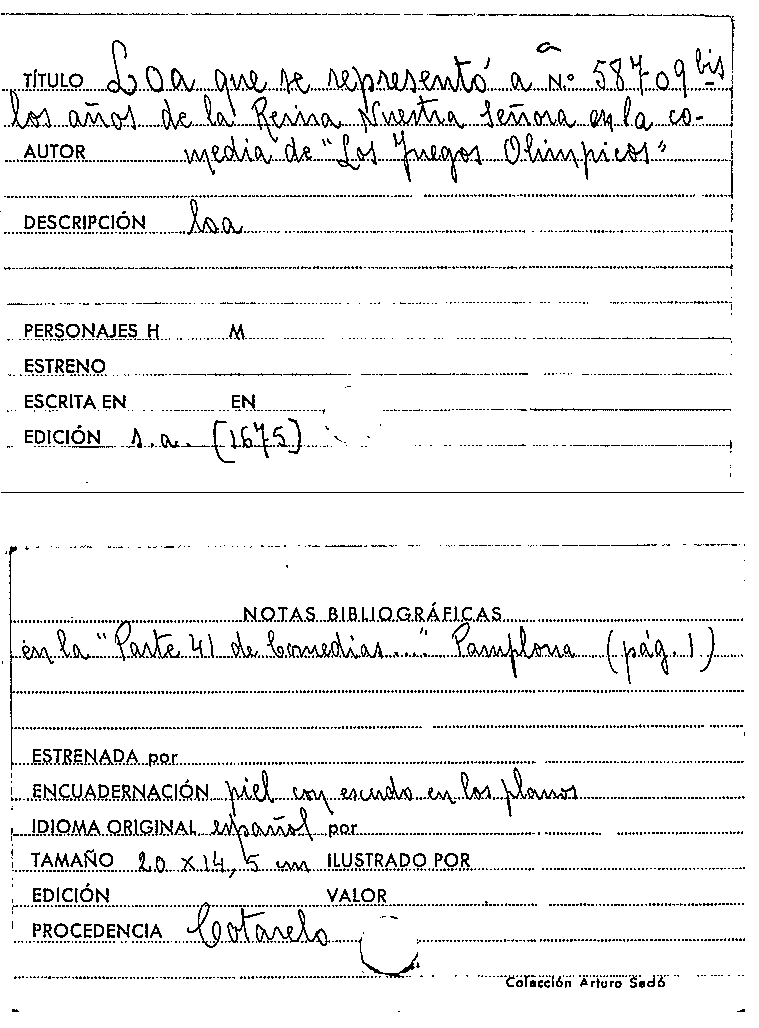 TÍTULO Loa que se representó a N.º 58709 bis
los años de la Reina Nuestra Señora en la co-
AUTOR media de "Los Juegos Olímpicos"
DESCRIPCIÓN loa
PERSONAJES H M
ESTRENO
ESCRITA EN EN
EDICIÓN s.a. [1675]
NOTAS BIBLIOGRÁFICAS
en la "Parte 41 de Comedias...." Pamplona (pág. 1)
ESTRENADA por
ENCUADERNACIÓN piel con escudo en los planos
IDIOMA ORIGINAL español por
TAMAÑO 20 x 14,5 cm ILUSTRADO POR
EDICIÓN VALOR
PROCEDENCIA Cotarelo
Colección Arturo Sedó